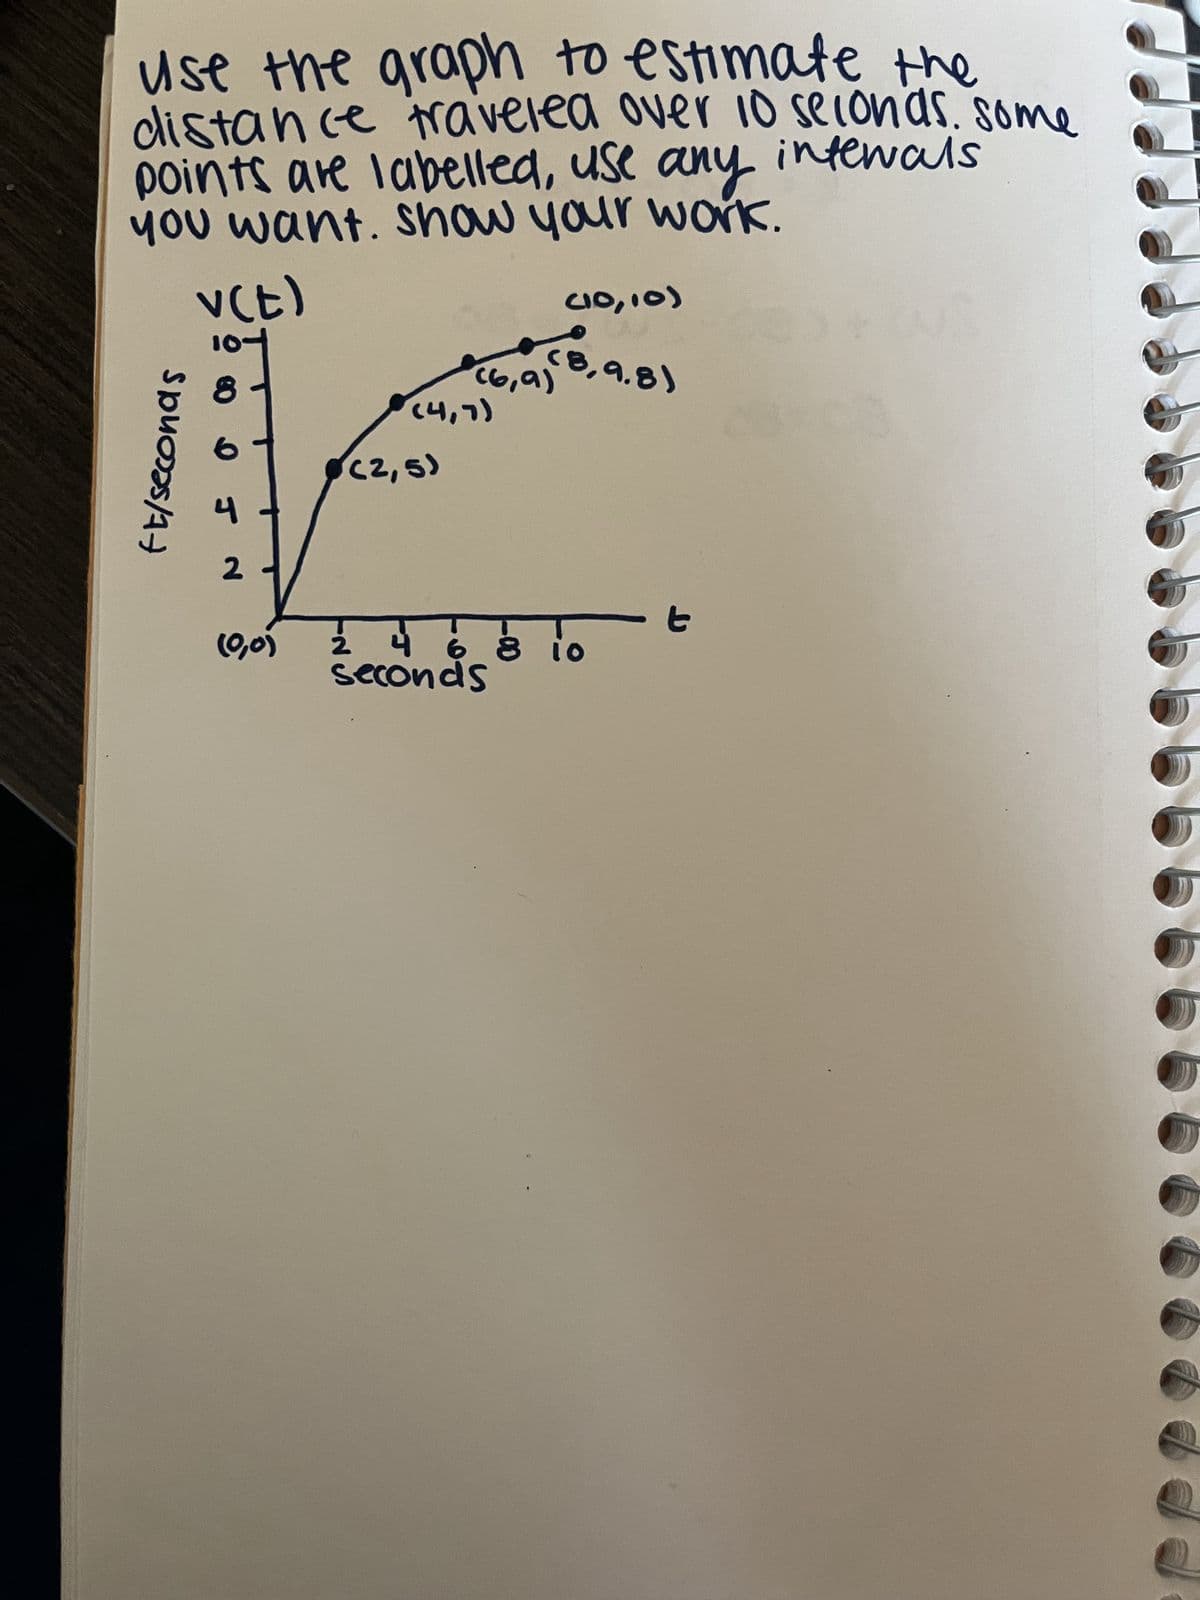 use the graph to estimate the
distance traveled over 10 seconds. some
points are labelled, use any intervals
you want. show your work.
v(t)
(10,10)
10
(8,9.8)
(6,9)
8
(4,7)
6
(2,5)
4
2
ft/seconds
t
(0,0) 2 4 6 8 10
seconds